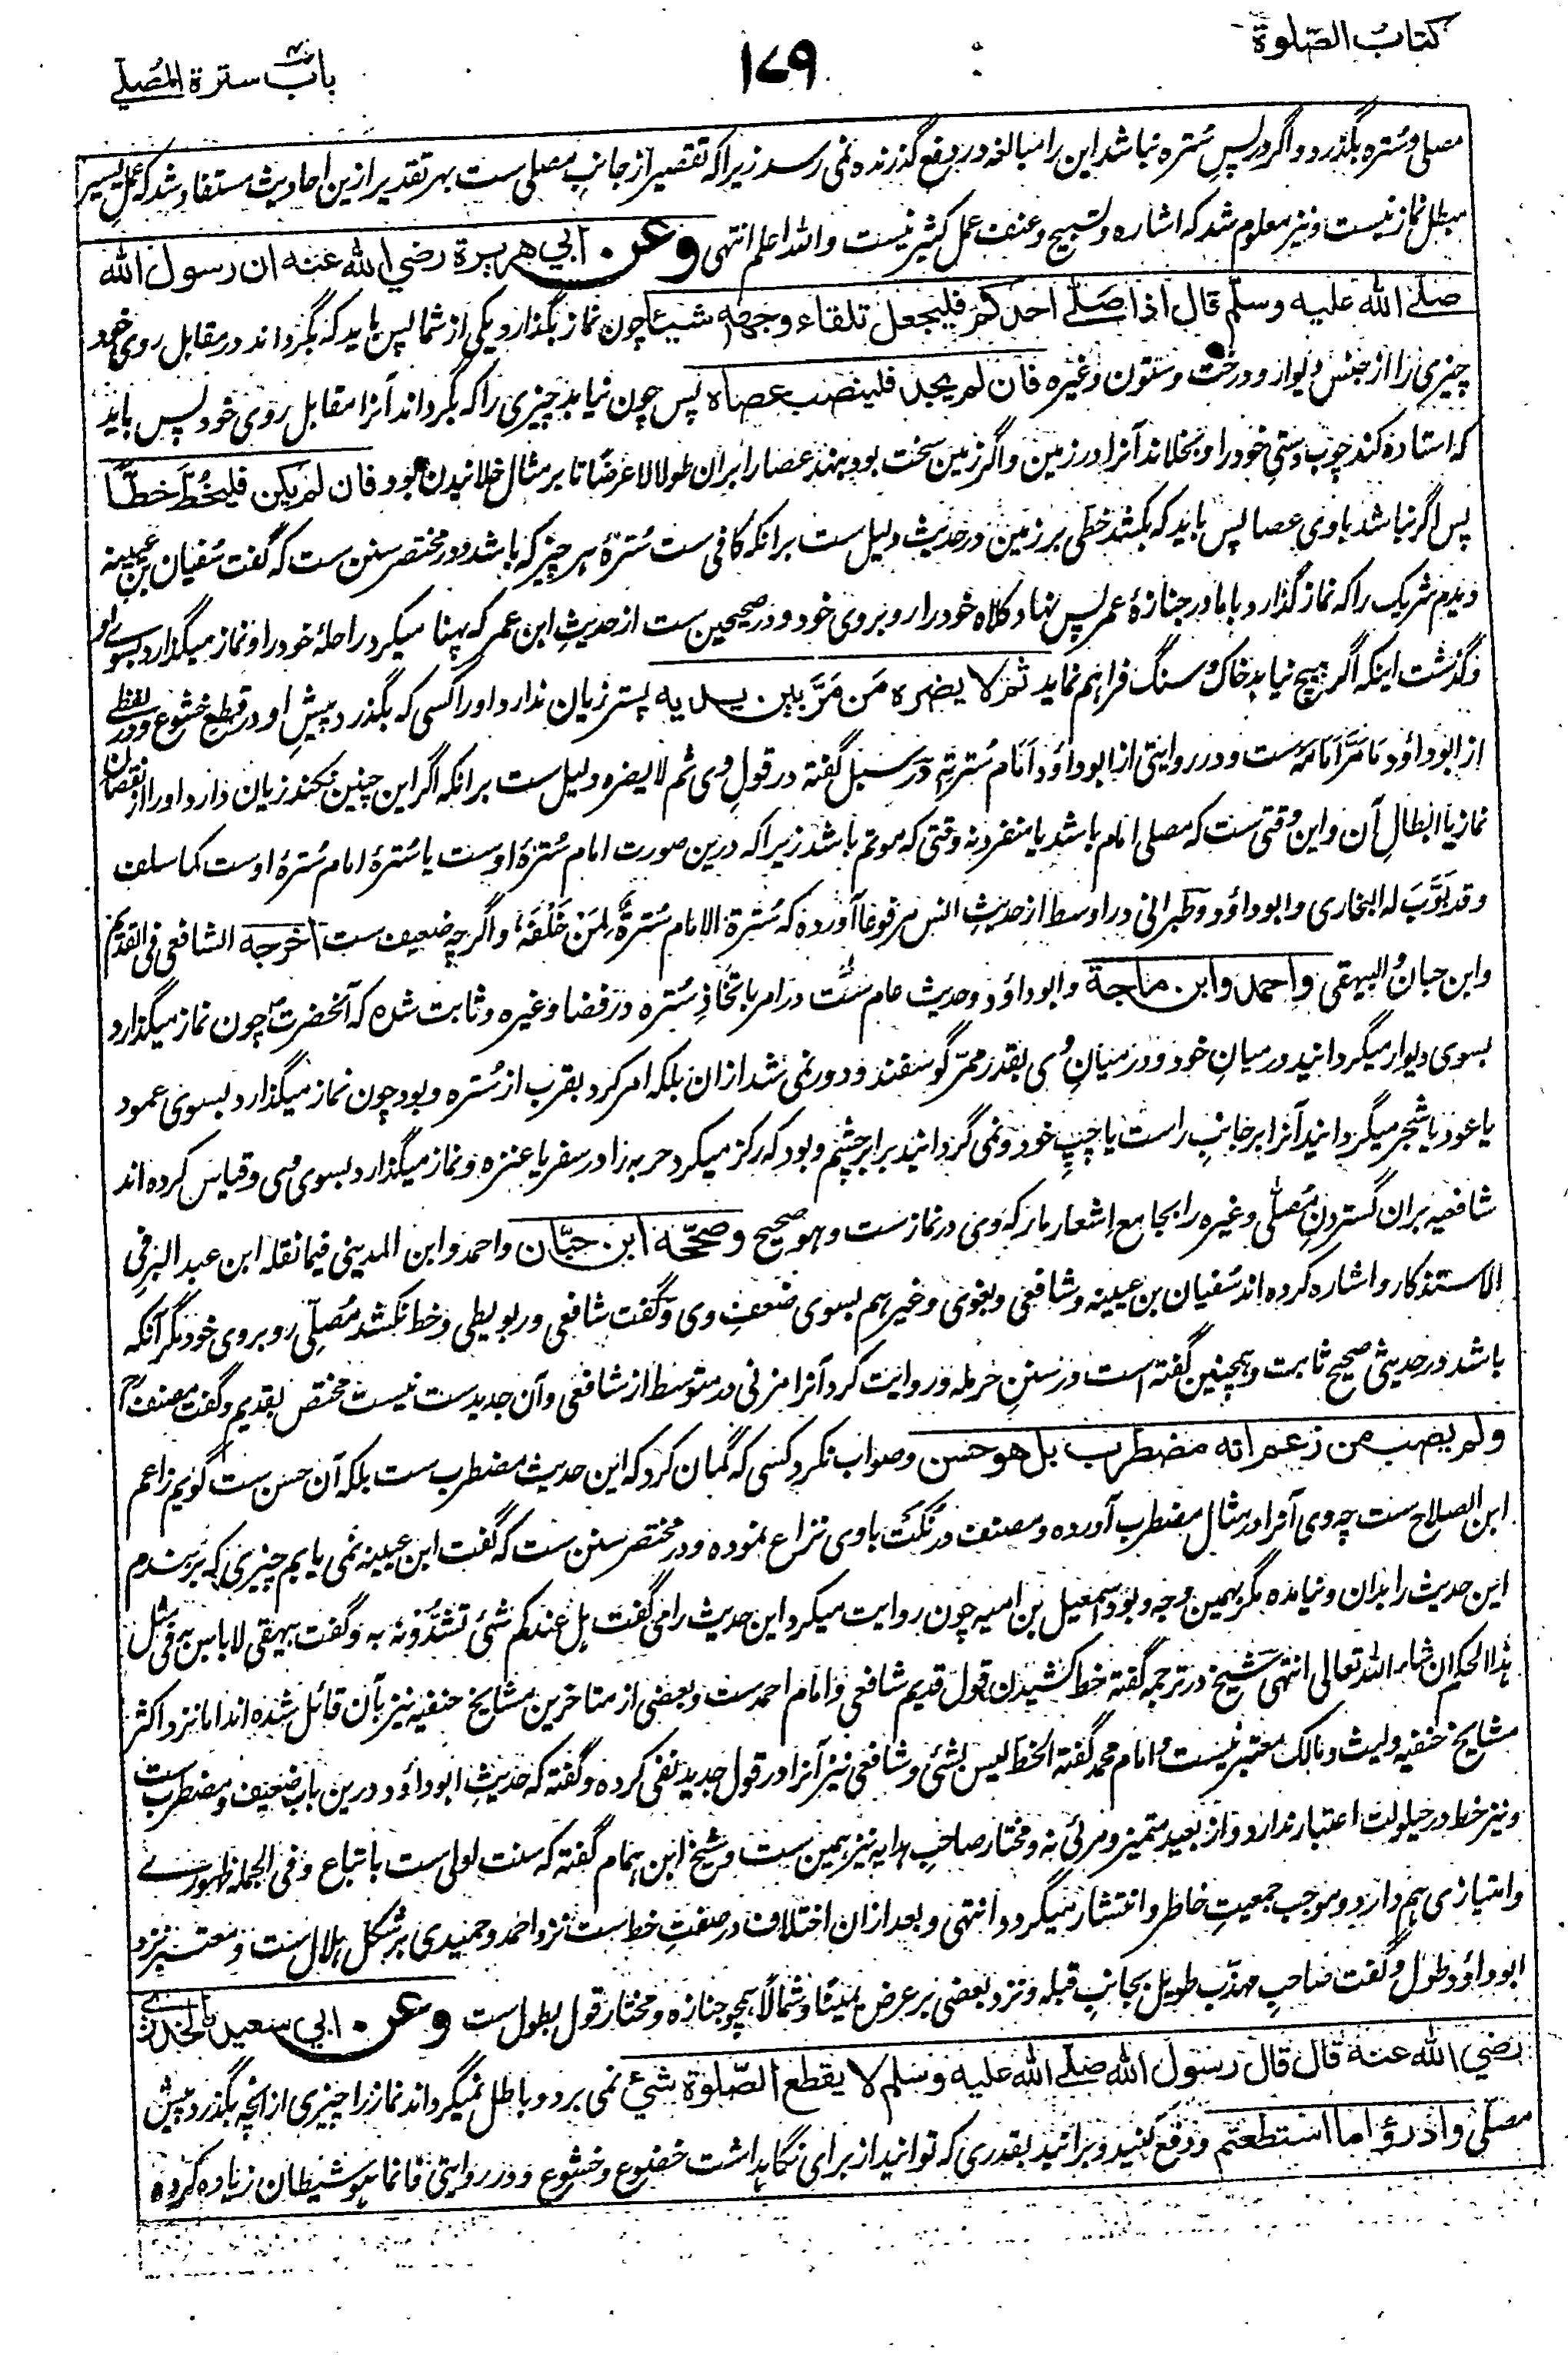 کتابُ الصّلوة
۱۷۹
بابُ سترة المُصلے
مصلی وسُتره بگذرد واگر در پسِ سُتره نباشد این را مبالغه در دفع گذرنده نمی رسد زیرا که تقصیر از جانبِ مصلی ست بهر تقدیر ازین احادیث مستفاد شد که عملِ یسیر
مبطل نماز نیست ونیز معلوم شد که اشاره وتسبیح وعنف عمل کثیر نیست والله اعلم انتهی وعن ابي هريرة رضي الله عنه ان رسول الله
صلے الله عليه وسلم قال اذا صَلّے احدكم فليجعل تلقاء وجهه شيئا چون نماز بگذارد یکی از شما پس باید که بگرداند در مقابل روی خود
چیزی را از جنس دیوار ودرخت وستون وغیره فان لم يجد فلينصب عصاه پس چون نیابد چیزی را که بگرداند آنرا مقابل روی خود پس باید
که استاده کند چوب دستیِ خود را وبخلاند آنرا در زمین واگر زمین سخت بود بنهد عصا را بران طولا لا عرضًا تا بر مثال خلانیدن بود فان لم يكن فليخُطَّ خطّا
پس اگر نباشد باوی عصا پس باید که بکشد خطی بر زمین در حدیث دلیل ست برانکه کافی ست سُترهٔ هر چیز که باشد ودر مختصر سنن ست که گفت سُفیان بن عیینه
دیدم شریک را که نماز گذارد باما در جنازهٔ عصر پس نهاد کلاه خود را روبروی خود ودر صحیحین ست از حدیثِ ابن عمر که پهنا میکرد راحلهٔ خود را ونماز میگذارد بسوے او
وگذشت اینکه اگر هیچ نیابد خاک وسنگ فراهم نماید ثم لا يضره مَن مَرَّ بين يديه پستر زیان ندارد او را کسی که بگذرد پیشِ او در قطع خشوع ودر لفظی
از ابوداؤد مَا مَرَّ اَمَامَهُ ست ودر روایتی از ابوداؤد اَمَام سُترتِهِ در سبل گفته در قولِ وی ثم لا یضره دلیل ست برانکه اگر این چنین نکند زیان دارد او را از نقصان
نماز یا ابطالِ آن واین وقتی ست که مصلی امام باشد یا منفرد نه وقتی که موتم باشد زیرا که درین صورت امام سُترهٔ اوست یا سُترهٔ امام سُترهٔ اوست کما سلف
وقد بَوَّبَ له البخاری وابوداؤد وطبرانی در اوسط از حدیثِ انس مرفوعًا آورده که سُترة الامام سُترةٌ لِمَن خَلْفَهُ واگرچه ضعیف ست اخرجه الشافعی فی القدیم
وابن حبان والبیهقی واحمد وابن ماجة وابوداؤد وحدیث عام ست در امر باتخاذِ سُتره در فضا وغیره وثابت شده که آنحضرت چون نماز میگذارد
بسوی دیوار میگردانید درمیانِ خود ودرمیانِ وی بقدر ممرّ گوسفند ودور نمی شد ازان بلکه امر کرد بقرب از سُتره وبود چون نماز میگذارد بسوی عمود
یا عود یا شجر میگردانید آنرا بر جانبِ راست یا چپِ خود ونمی گردانید برابر چشم وبود که رکز میکرد حربه را در سفر یا عنزه ونماز میگذارد بسوی وی وقیاس کرده اند
شافعیه بران گستردنِ مُصلّی وغیره را بجامع اِشعارِ مار که وی در نماز ست وهو صحیح وصحّحه ابن حبّان واحمد وابن المدینی فیما نقله ابن عبد البر فی
الاستذکار واشاره کرده اند سُفیان بن عیینه وشافعی وبغوی وغیرهم بسوی ضعف وی وگفت شافعی در بویطی وخط نکشد مُصلّی روبروی خود مگر آنکه
باشد در حدیثی صحیح ثابت وهمچنین گفته است در سننِ حرمله وروایت کرد آنرا مزنی در مبسوط از شافعی وآن جدید ست نیست مختص بقدیم وگفت مصنفؒ
ولم يصب من زعم انه مضطرب بل هو حسن وصواب نکرد کسی که گمان کرد که این حدیث مضطرب ست بلکه آن حسن ست گویم زاعم
ابن الصلاح ست چه وی آنرا در مثال مضطرب آورده ومصنف در نُکَت باوی نزاع نموده ودر مختصر سنن ست که گفت ابن عیینه نمی یابیم چیزی که بربندم
این حدیث را بدان ونیامده مگر بهمین وجه وبود اسمعیل بن امیه چون روایت میکرد این حدیث را می گفت هل عندکم شئ تشدّونه به وگفت بیهقی لا باس به فی مثل
هذا الحکم ان شاء الله تعالی انتهی شیخ در ترجمه گفته خط کشیدن قول قدیم شافعی وامام احمد ست وبعضی از متاخرین مشایخ حنفیه نیز بآن قائل شده اند اما نزد اکثر
مشایخ حنفیه ولیث ومالک معتبر نیست وامام محمد گفته الخط لیس بشئ وشافعی نیز آنرا در قول جدید نفی کرده وگفته که حدیثِ ابوداؤد درین باب ضعیف ومضطرب ست
ونیز خط در حیلولت اعتبار ندارد واز بعید متمیز ومرئی نه ومختار صاحبِ هدایه نیز همین ست وشیخ ابن همام گفته که سنت اولی ست باتباع وفی الجمله ظهورے
وامتیازی هم دارد وموجب جمعیتِ خاطر وانتشار نمیگردد انتهی وبعد ازان اختلاف در صفتِ خط ست نزد احمد وحمیدی بر شکل هلال ست ومعتبر نزد
ابوداؤد طول وگفت صاحبِ مهذّب طویل بجانبِ قبله ونزد بعضی بر عرض یمینًا وشمالًا همچو جنازه ومختار قول بطول ست وعن ابي سعيد الخدري
رضي الله عنه قال قال رسول الله صلے الله عليه وسلم لا يقطع الصّلوة شيءٌ نمی برد وباطل نمیگرداند نماز را چیزی ازانچه بگذرد پیش
مصلّی وادرؤا ما استطعتم ودفع کنید وبرانید بقدری که توانید از برای نگاهداشت خضوع وخشوع ودر روایتی فانما هو شیطان زیاده کرده